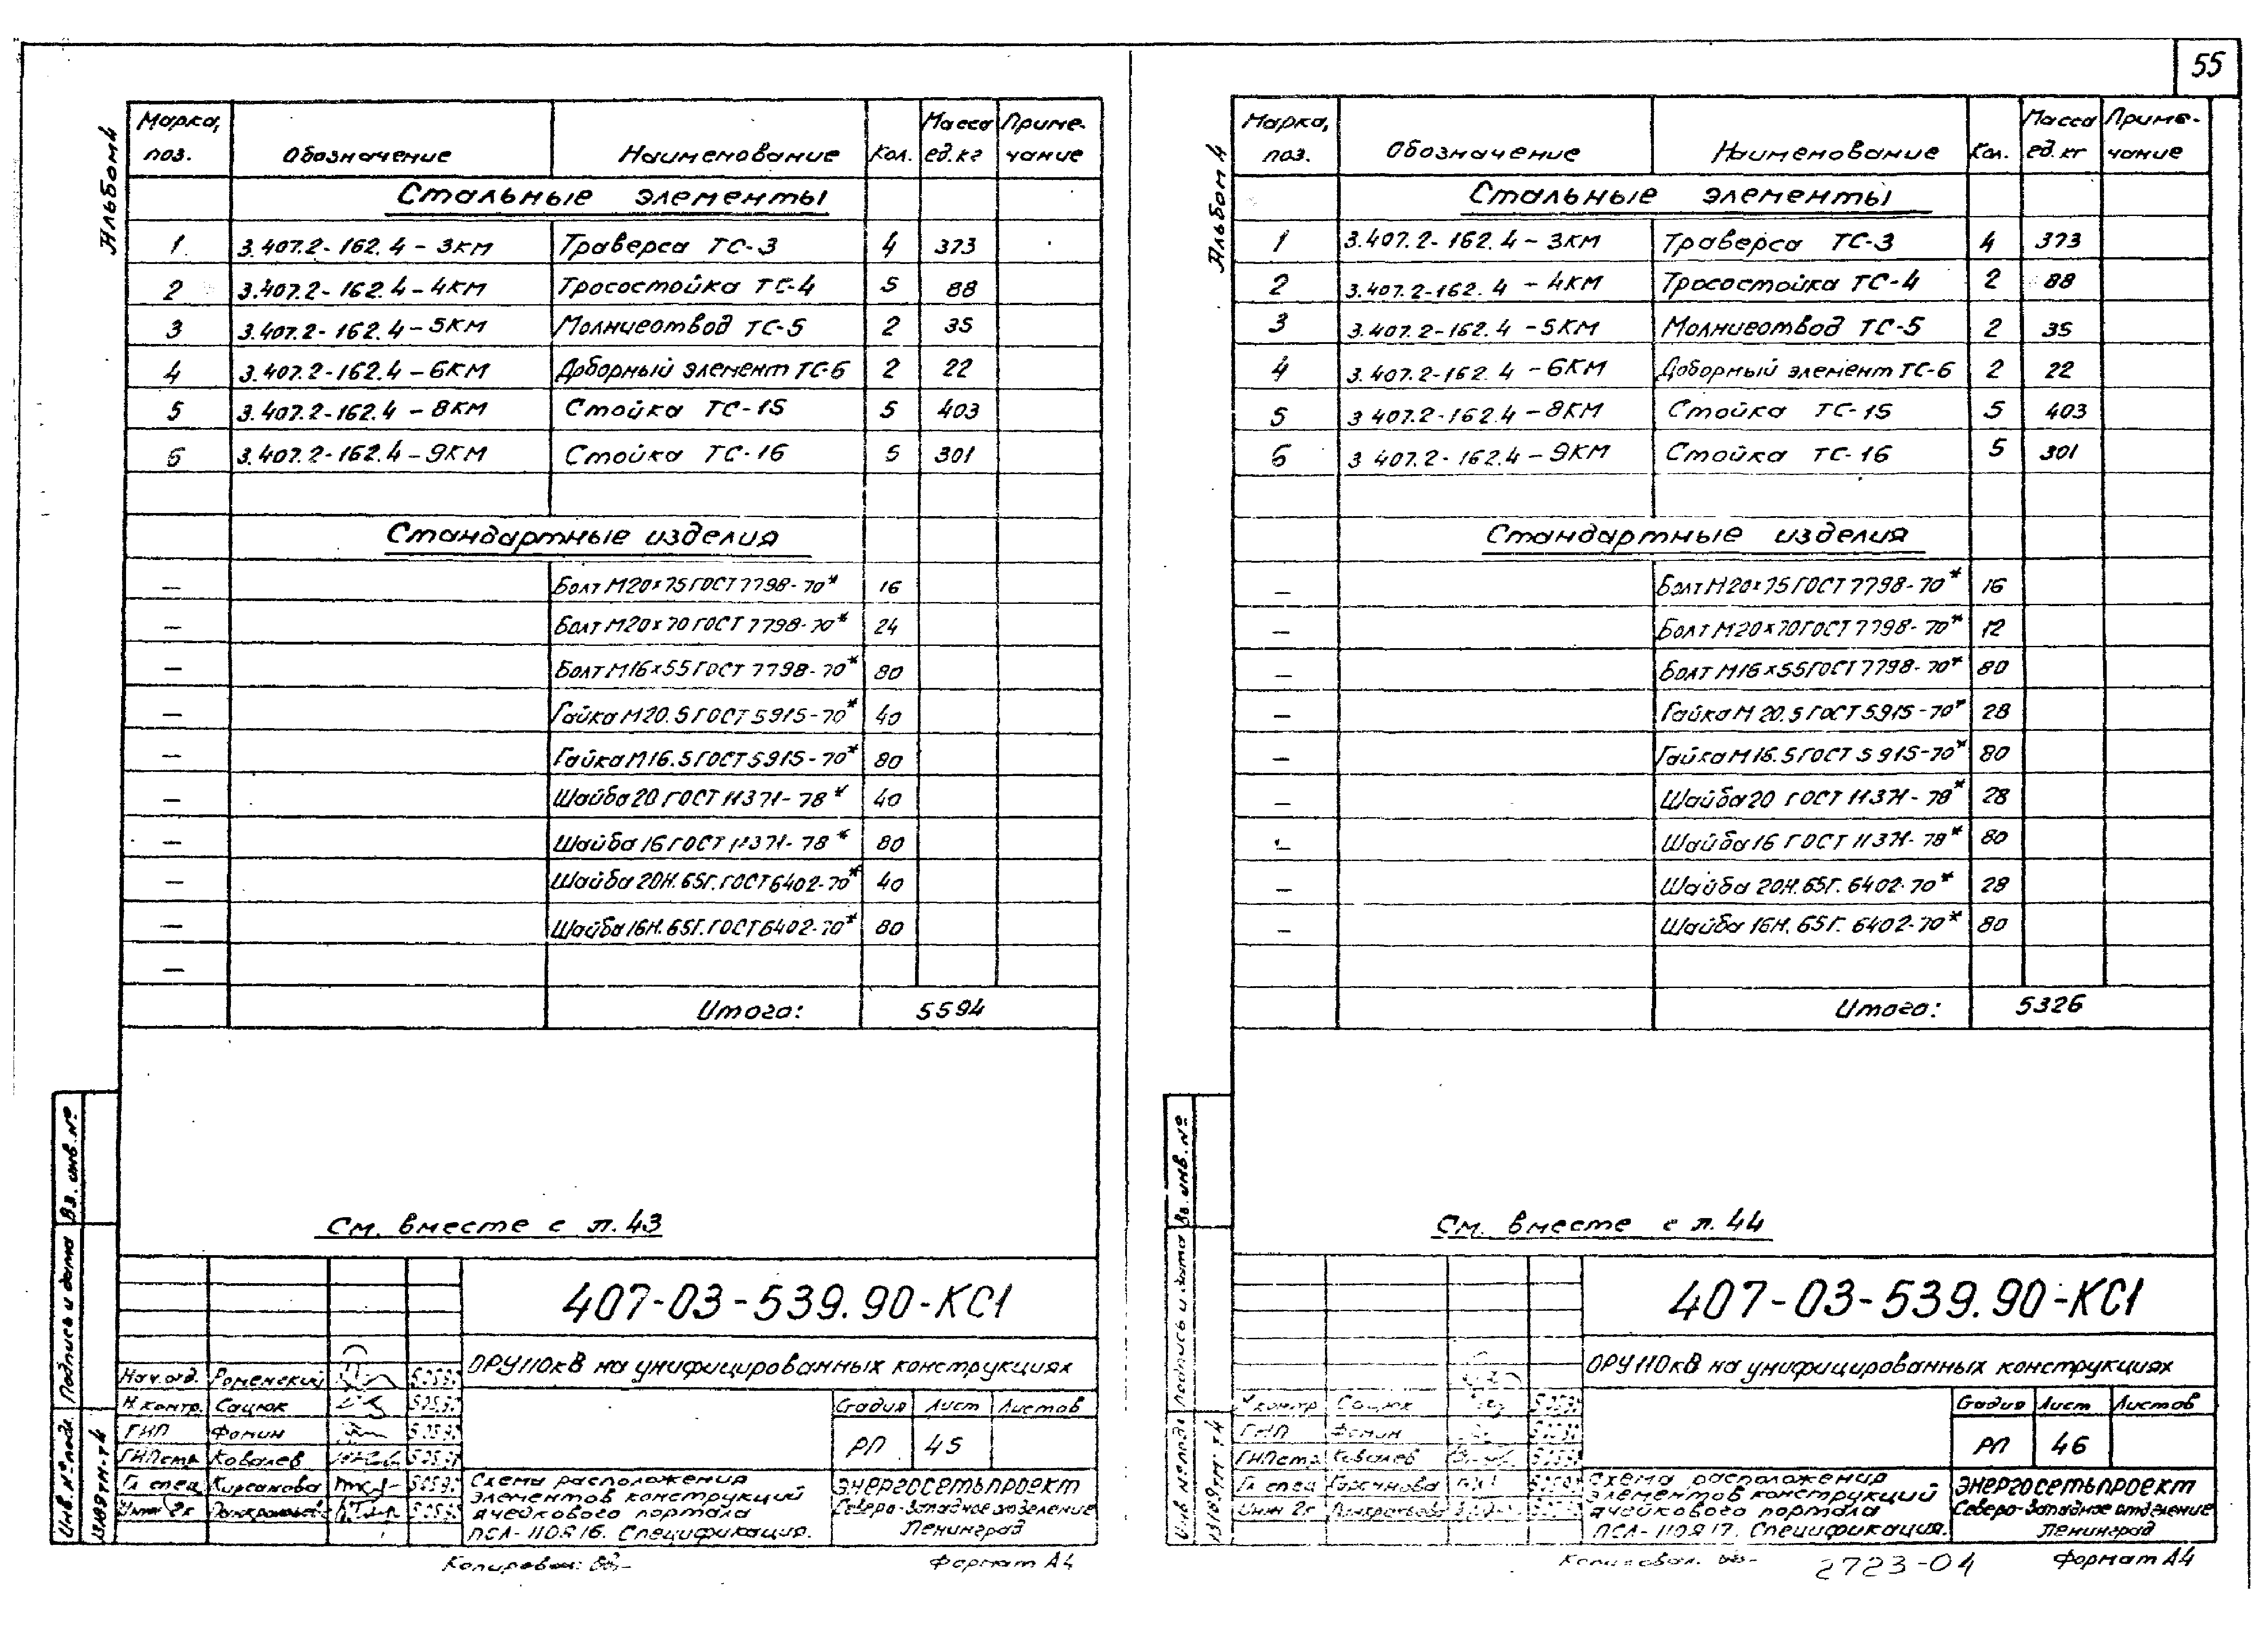 55
Альбом 4
Марка, поз. Обозначение Наименование Кол. Масса ед. кг Примечание
Стальные элементы
1 3.407.2-162.4-3КМ Траверса ТС-3 4 373
2 3.407.2-162.4-4КМ Тросостойка ТС-4 5 88
3 3.407.2-162.4-5КМ Молниеотвод ТС-5 2 35
4 3.407.2-162.4-6КМ Доборный элемент ТС-6 2 22
5 3.407.2-162.4-8КМ Стойка ТС-15 5 403
6 3.407.2-162.4-9КМ Стойка ТС-16 5 301
Стандартные изделия
— Болт М20×75 ГОСТ 7798-70* 16
— Болт М20×70 ГОСТ 7798-70* 24
— Болт М16×55 ГОСТ 7798-70* 80
— Гайка М20.5 ГОСТ 5915-70* 40
— Гайка М16.5 ГОСТ 5915-70* 80
— Шайба 20 ГОСТ 11371-78* 40
— Шайба 16 ГОСТ 11371-78* 80
— Шайба 20Н.65Г. ГОСТ 6402-70* 40
— Шайба 16Н.65Г. ГОСТ 6402-70* 80
—
Итого: 5594
См. вместе с л. 43
407-03-539.90-КС1
ОРУ 110кВ на унифицированных конструкциях
Нач. отд. Роменский
Н. контр. Сацюк
ГИП Фомин
ГИП стр. Ковалев
Гл. спец. Кирсанова
Инж 2к
Стадия Лист Листов
РП 45
Схема расположения
элементов конструкций
ячейкового портала
ПСЛ-110Я16. Спецификация.
Энергосетьпроект
Северо-Западное отделение
Ленинград
Инв. № подл. Подпись и дата Вз. инв. №
13109тм-т4
Копировал:
Формат А4
Альбом 4
Марка, поз. Обозначение Наименование Кол. Масса ед. кг Примечание
Стальные элементы
1 3.407.2-162.4-3КМ Траверса ТС-3 4 373
2 3.407.2-162.4-4КМ Тросостойка ТС-4 2 88
3 3.407.2-162.4-5КМ Молниеотвод ТС-5 2 35
4 3.407.2-162.4-6КМ Доборный элемент ТС-6 2 22
5 3 407.2-162.4-8КМ Стойка ТС-15 5 403
6 3 407.2-162.4-9КМ Стойка ТС-16 5 301
Стандартные изделия
— Болт М20×75 ГОСТ 7798-70* 16
— Болт М20×70 ГОСТ 7798-70* 12
— Болт М16×55 ГОСТ 7798-70* 80
— Гайка М20.5 ГОСТ 5915-70* 28
— Гайка М16.5 ГОСТ 5915-70* 80
— Шайба 20 ГОСТ 11371-78* 28
— Шайба 16 ГОСТ 11371-78* 80
— Шайба 20Н.65Г. 6402-70* 28
— Шайба 16Н.65Г. 6402-70* 80
Итого: 5326
См. вместе с л. 44
407-03-539.90-КС1
ОРУ 110кВ на унифицированных конструкциях
Н контр Сацюк
ГИП Фомин
ГИП стр Ковалев
Гл спец
Инж 2к
Стадия Лист Листов
РП 46
Схема расположения
элементов конструкций
ячейкового портала
ПСЛ-110Я17. Спецификация.
Энергосетьпроект
Северо-Западное отделение
Ленинград
Инв № подл Подпись и дата Вз. инв. №
13109тм-т4
Копировал.
2723-04
Формат А4